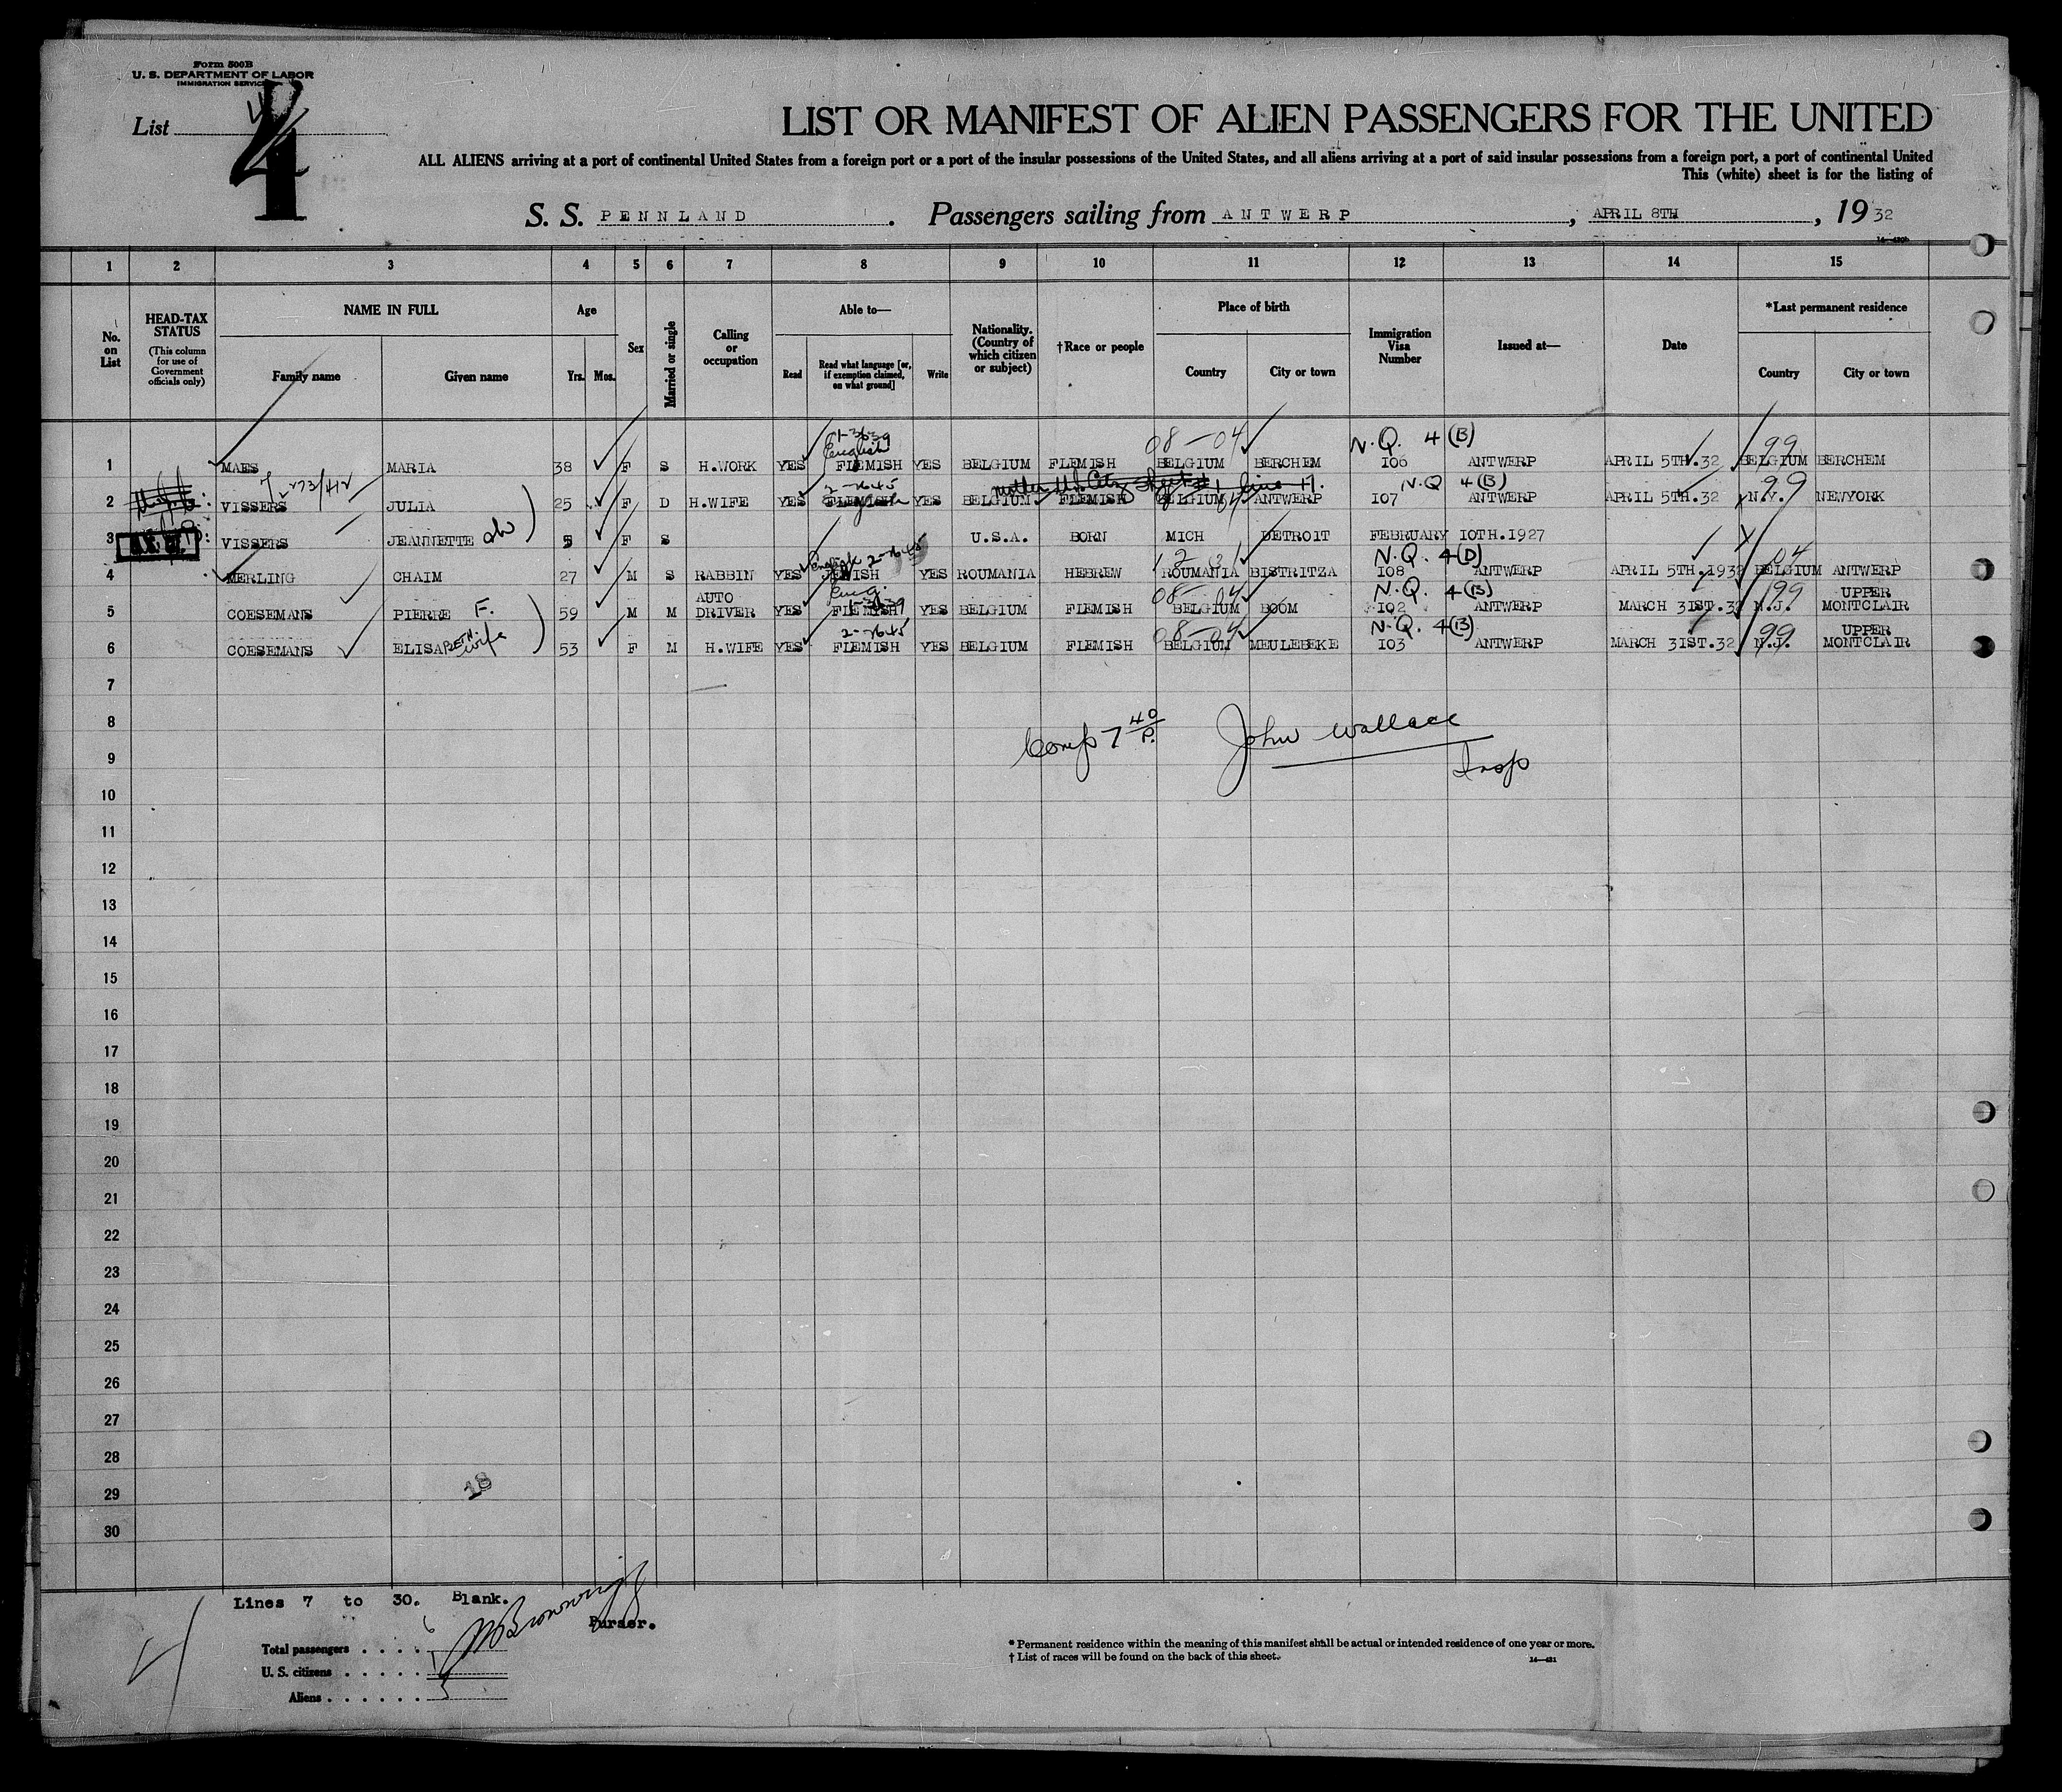 Form 500B
U. S. DEPARTMENT OF LABOR
IMMIGRATION SERVICE
List 4
LIST OR MANIFEST OF ALIEN PASSENGERS FOR THE UNITED
ALL ALIENS arriving at a port of continental United States from a foreign port or a port of the insular possessions of the United States, and all aliens arriving at a port of said insular possessions from a foreign port, a port of continental United
This (white) sheet is for the listing of
S. S. PENNLAND. Passengers sailing from ANTWERP, APRIL 8TH, 19 32
1 2 3 4 5 6 7 8 9 10 11 12 13 14 15
No. on List
HEAD-TAX STATUS (This column for use of Government officials only)
NAME IN FULL Family name Given name
Age Yrs. Mos.
Sex
Married or single
Calling or occupation
Able to— Read Read what language [or, if exemption claimed, on what ground] Write
Nationality. (Country of which citizen or subject)
†Race or people
Place of birth Country City or town
Immigration Visa Number
Issued at—
Date
*Last permanent residence Country City or town
1-3639 08-04 N.Q. 4(B) 99
English
1 MAES MARIA 38 F S H.WORK YES FLEMISH YES BELGIUM FLEMISH BELGIUM BERCHEM 106 ANTWERP APRIL 5TH.32 BELGIUM BERCHEM
2-7645 N.Q 4(B) 99
2 VISSERS JULIA 25 F D H.WIFE YES FLEMISH YES BELGIUM FLEMISH BELGIUM ANTWERP 107 ANTWERP APRIL 5TH.32 N.Y. NEWYORK
3 VISSERS JEANNETTE 5 F S U.S.A. BORN MICH DETROIT FEBRUARY 10TH.1927
English 2-7645 N.Q. 4(D) 04
4 MERLING CHAIM 27 M S RABBIN YES JEWISH YES ROUMANIA HEBREW ROUMANIA BISTRITZA 108 ANTWERP APRIL 5TH.1932 BELGIUM ANTWERP
Eng. 1-3639 08-04 N.Q. 4(B) 99
5 COESEMANS PIERRE F. 59 M M AUTO DRIVER YES FLEMISH YES BELGIUM FLEMISH BELGIUM BOOM 102 ANTWERP MARCH 31ST.32 N.J. UPPER MONTCLAIR
2-7645 08-04 N.Q. 4(B) 99
6 COESEMANS ELISABETH. wife 53 F M H.WIFE YES FLEMISH YES BELGIUM FLEMISH BELGIUM MEULEBEKE 103 ANTWERP MARCH 31ST.32 N.J. UPPER MONTCLAIR
7
8
Comp 7 40 P. John Wallace
9
Insp
10
11
12
13
14
15
16
17
18
19
20
21
22
23
24
25
26
27
28
29
18
30
Lines 7 to 30. Blank.
Browning
Purser.
Total passengers . . . . 6
U. S. citizens . . . . . 1
Aliens . . . . . . 5
* Permanent residence within the meaning of this manifest shall be actual or intended residence of one year or more.
† List of races will be found on the back of this sheet.
14—421